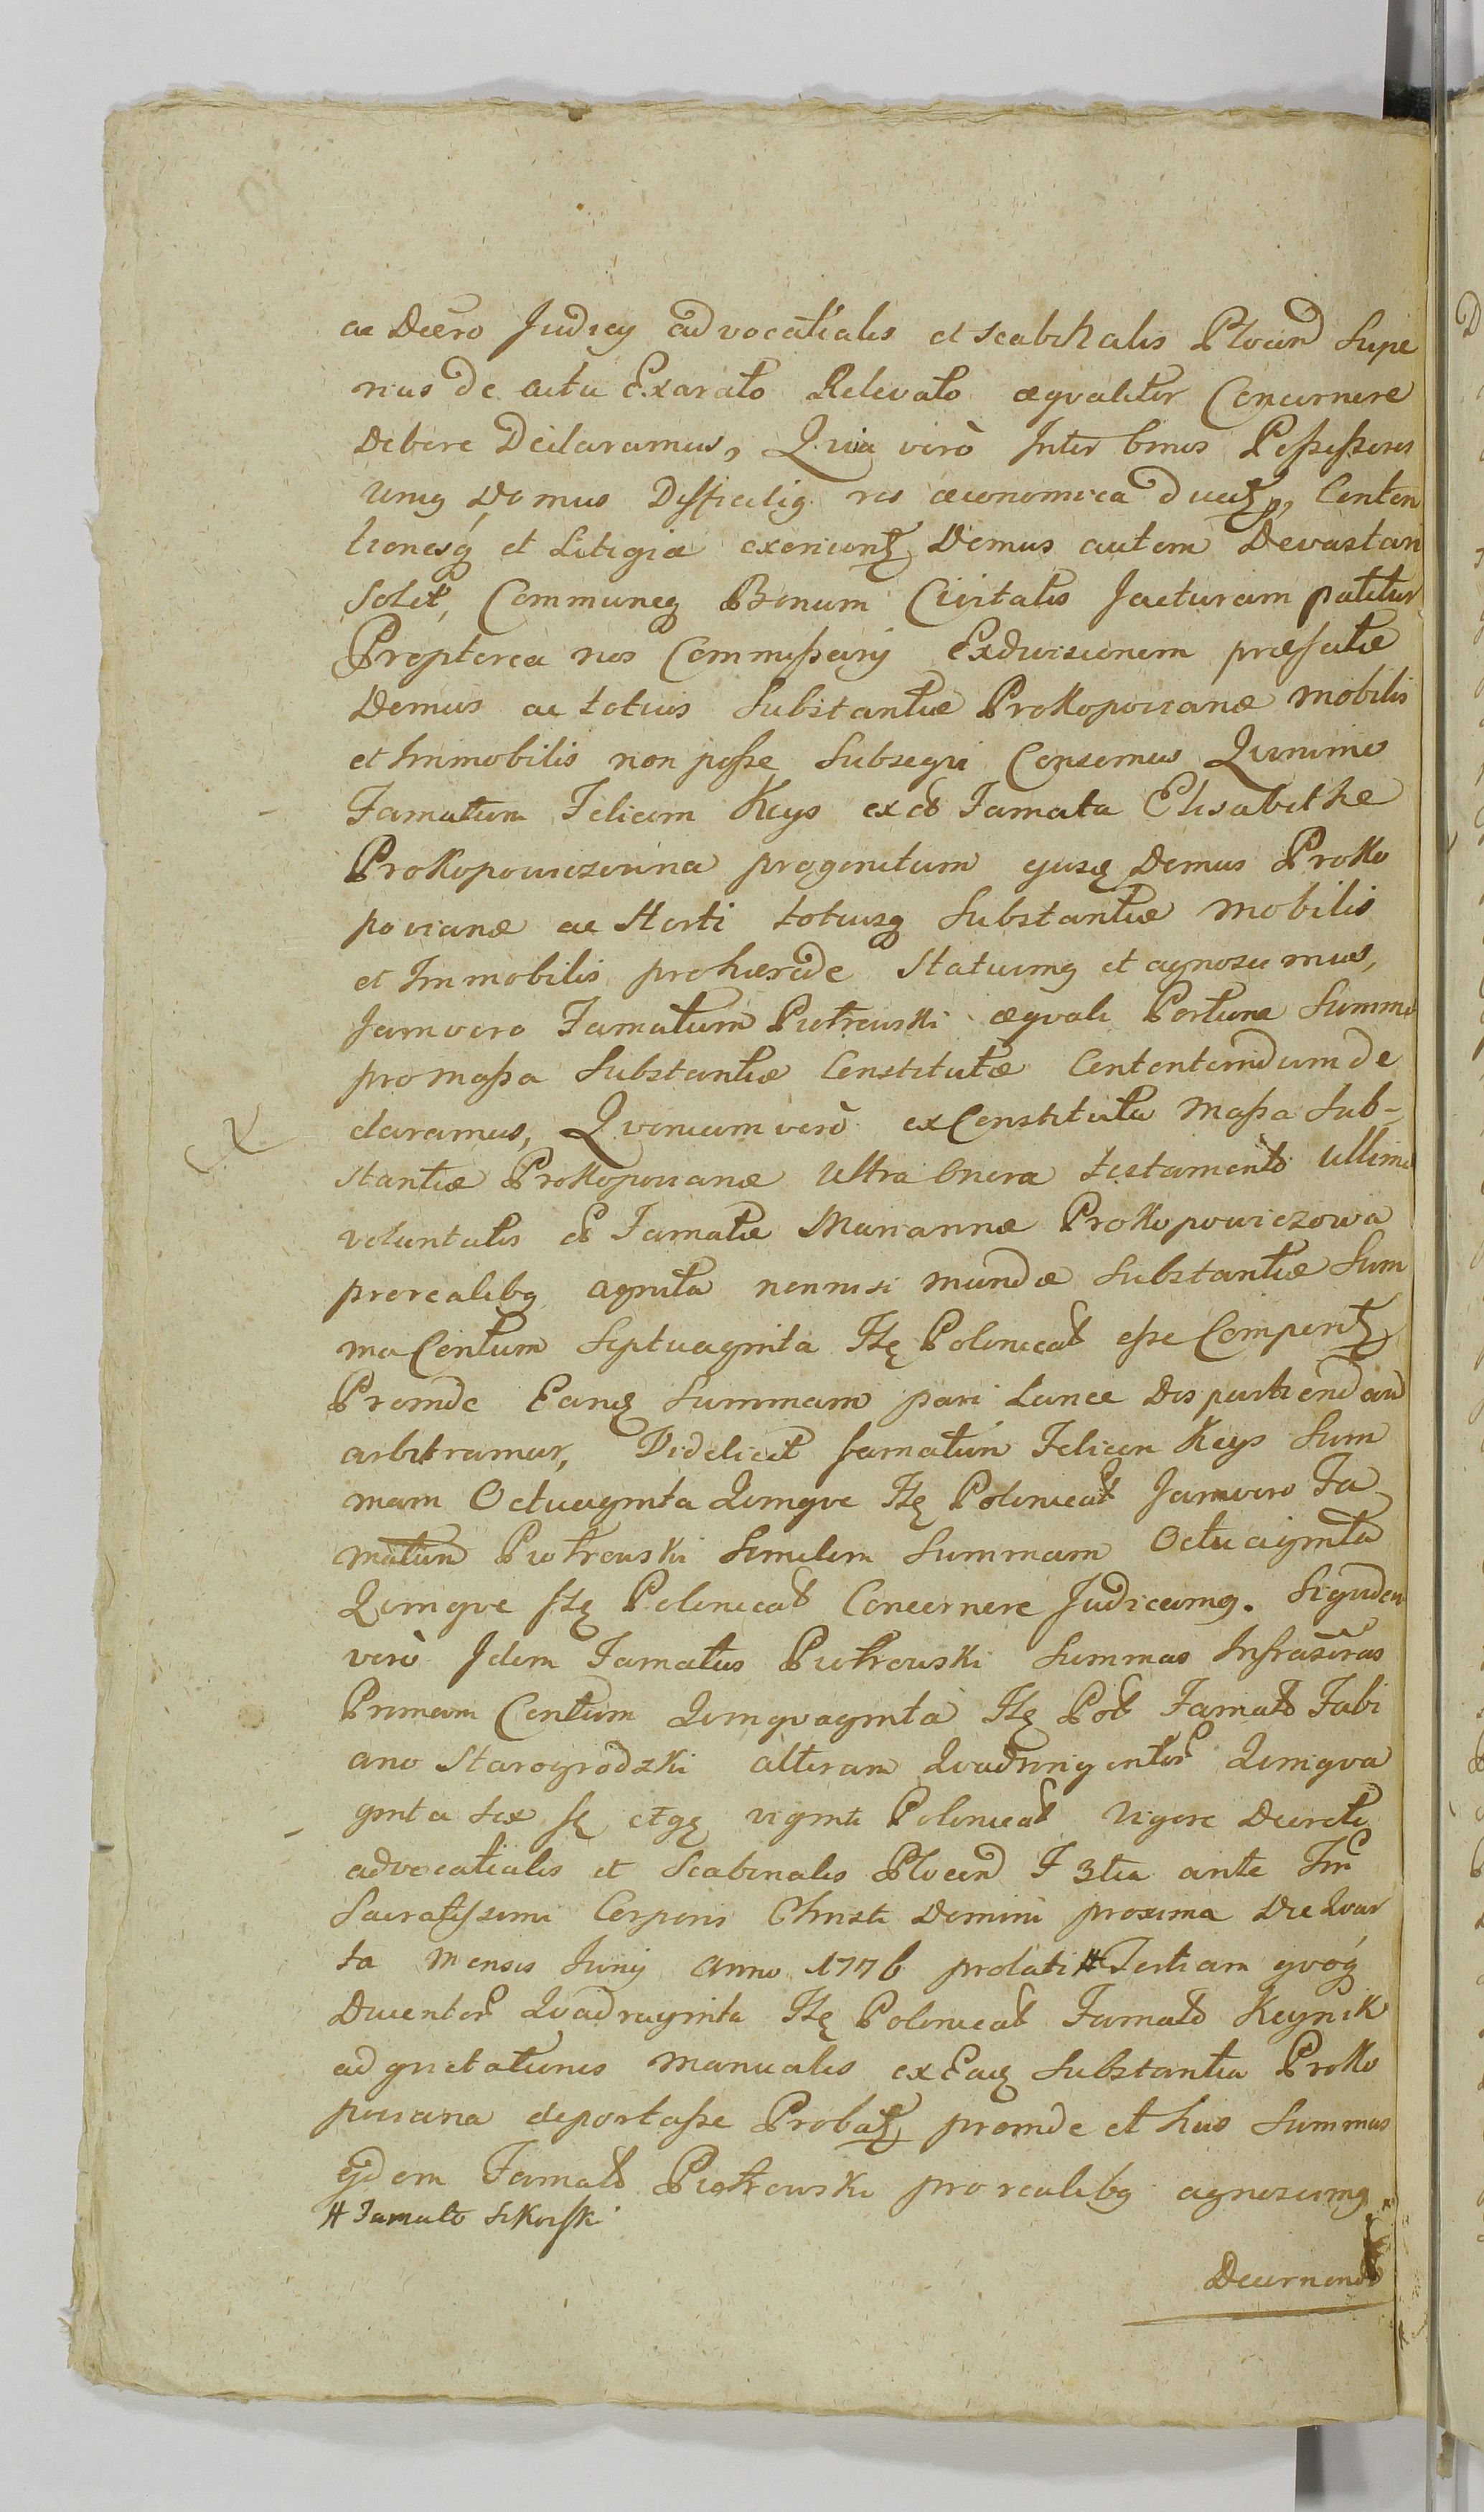 ac Decro Judicy advocatialis et scabinalis Plocen Supe
rius de actu Exarato Relevato æqualiter Concernere
Debere Declaramus, Quia verò Inter binos Possessores
unig Domus Difficilig res œconomica ducit, Conten
tionesq et Litigia exoriunt Domus autem Devastari
Solet, Communeq Bonum Civitatis Jacturam patitur
Propterea nos Commissarij Exdivisionem præfatæ
Domus ac totius Substantiæ Prokopovianæ mobilis
et Immobilis non posse Subsequi Censemus Quinimo
Famatum Felicem Keys ex Famata Elisabethe
Prokopowiczowna progenitum ejusq Domus Proko
povianæ ac Horti totiusq Substantiæ mobilis
et Immobilis prohærede Statuimg et agnoscimus,
Jamvero Famatum Piotrowski æquali Portione Summo
pro massa Substantiæ Constitutæ Contentandum de
claramus, Quoniam verò ex Constituta Massa Sub-
stantiæ Prokopovianæ Ultra Onera testamento Ultimo
voluntatis Famatæ Mariannæ Prokopowiczowa
prorealibg agnita nonnisi mundæ Substantiæ Sum
ma Centum Septuaginta Flę Polonical esse Comperit
Proinde Eanq Summam pari Lance Dispartiendam
arbitramur, Videlicet famatum Felicem Keys Sum
mam Octuaginta Quinque Flę Polonical Jamvero Fa
matum Piotrowski Similem Summam Octuaginta
Quinque flę Polonical Concernere Judicamg. Siquidem
verò Idem Famatus Piotrowski Summas Infrascras
Primam Centum Quinquaginta Flę Pol Famato Fabi
ano Starogrodzki alteram Quadringentor Quinqua
ginta sex fl viginti Polonical Vigore Decreti
advocatialis et Scabinalis Plocen F 3tia ante Fm
Sacratissimi Corporis Christi Domini proxima Die Quar
ta Mensis Junij anno 1776 prolati # Tertiam quoq
Ducentor Quadraginta Flę Polonical Famato Keynik
ad quietationis manualis ex Eaq Substantia Proko
poviana deportasse Probat, proinde et has Summas
Ejdem Famato Piotrowski pro realibg agnoscimg.
# Famato Sikorski
Decernendo